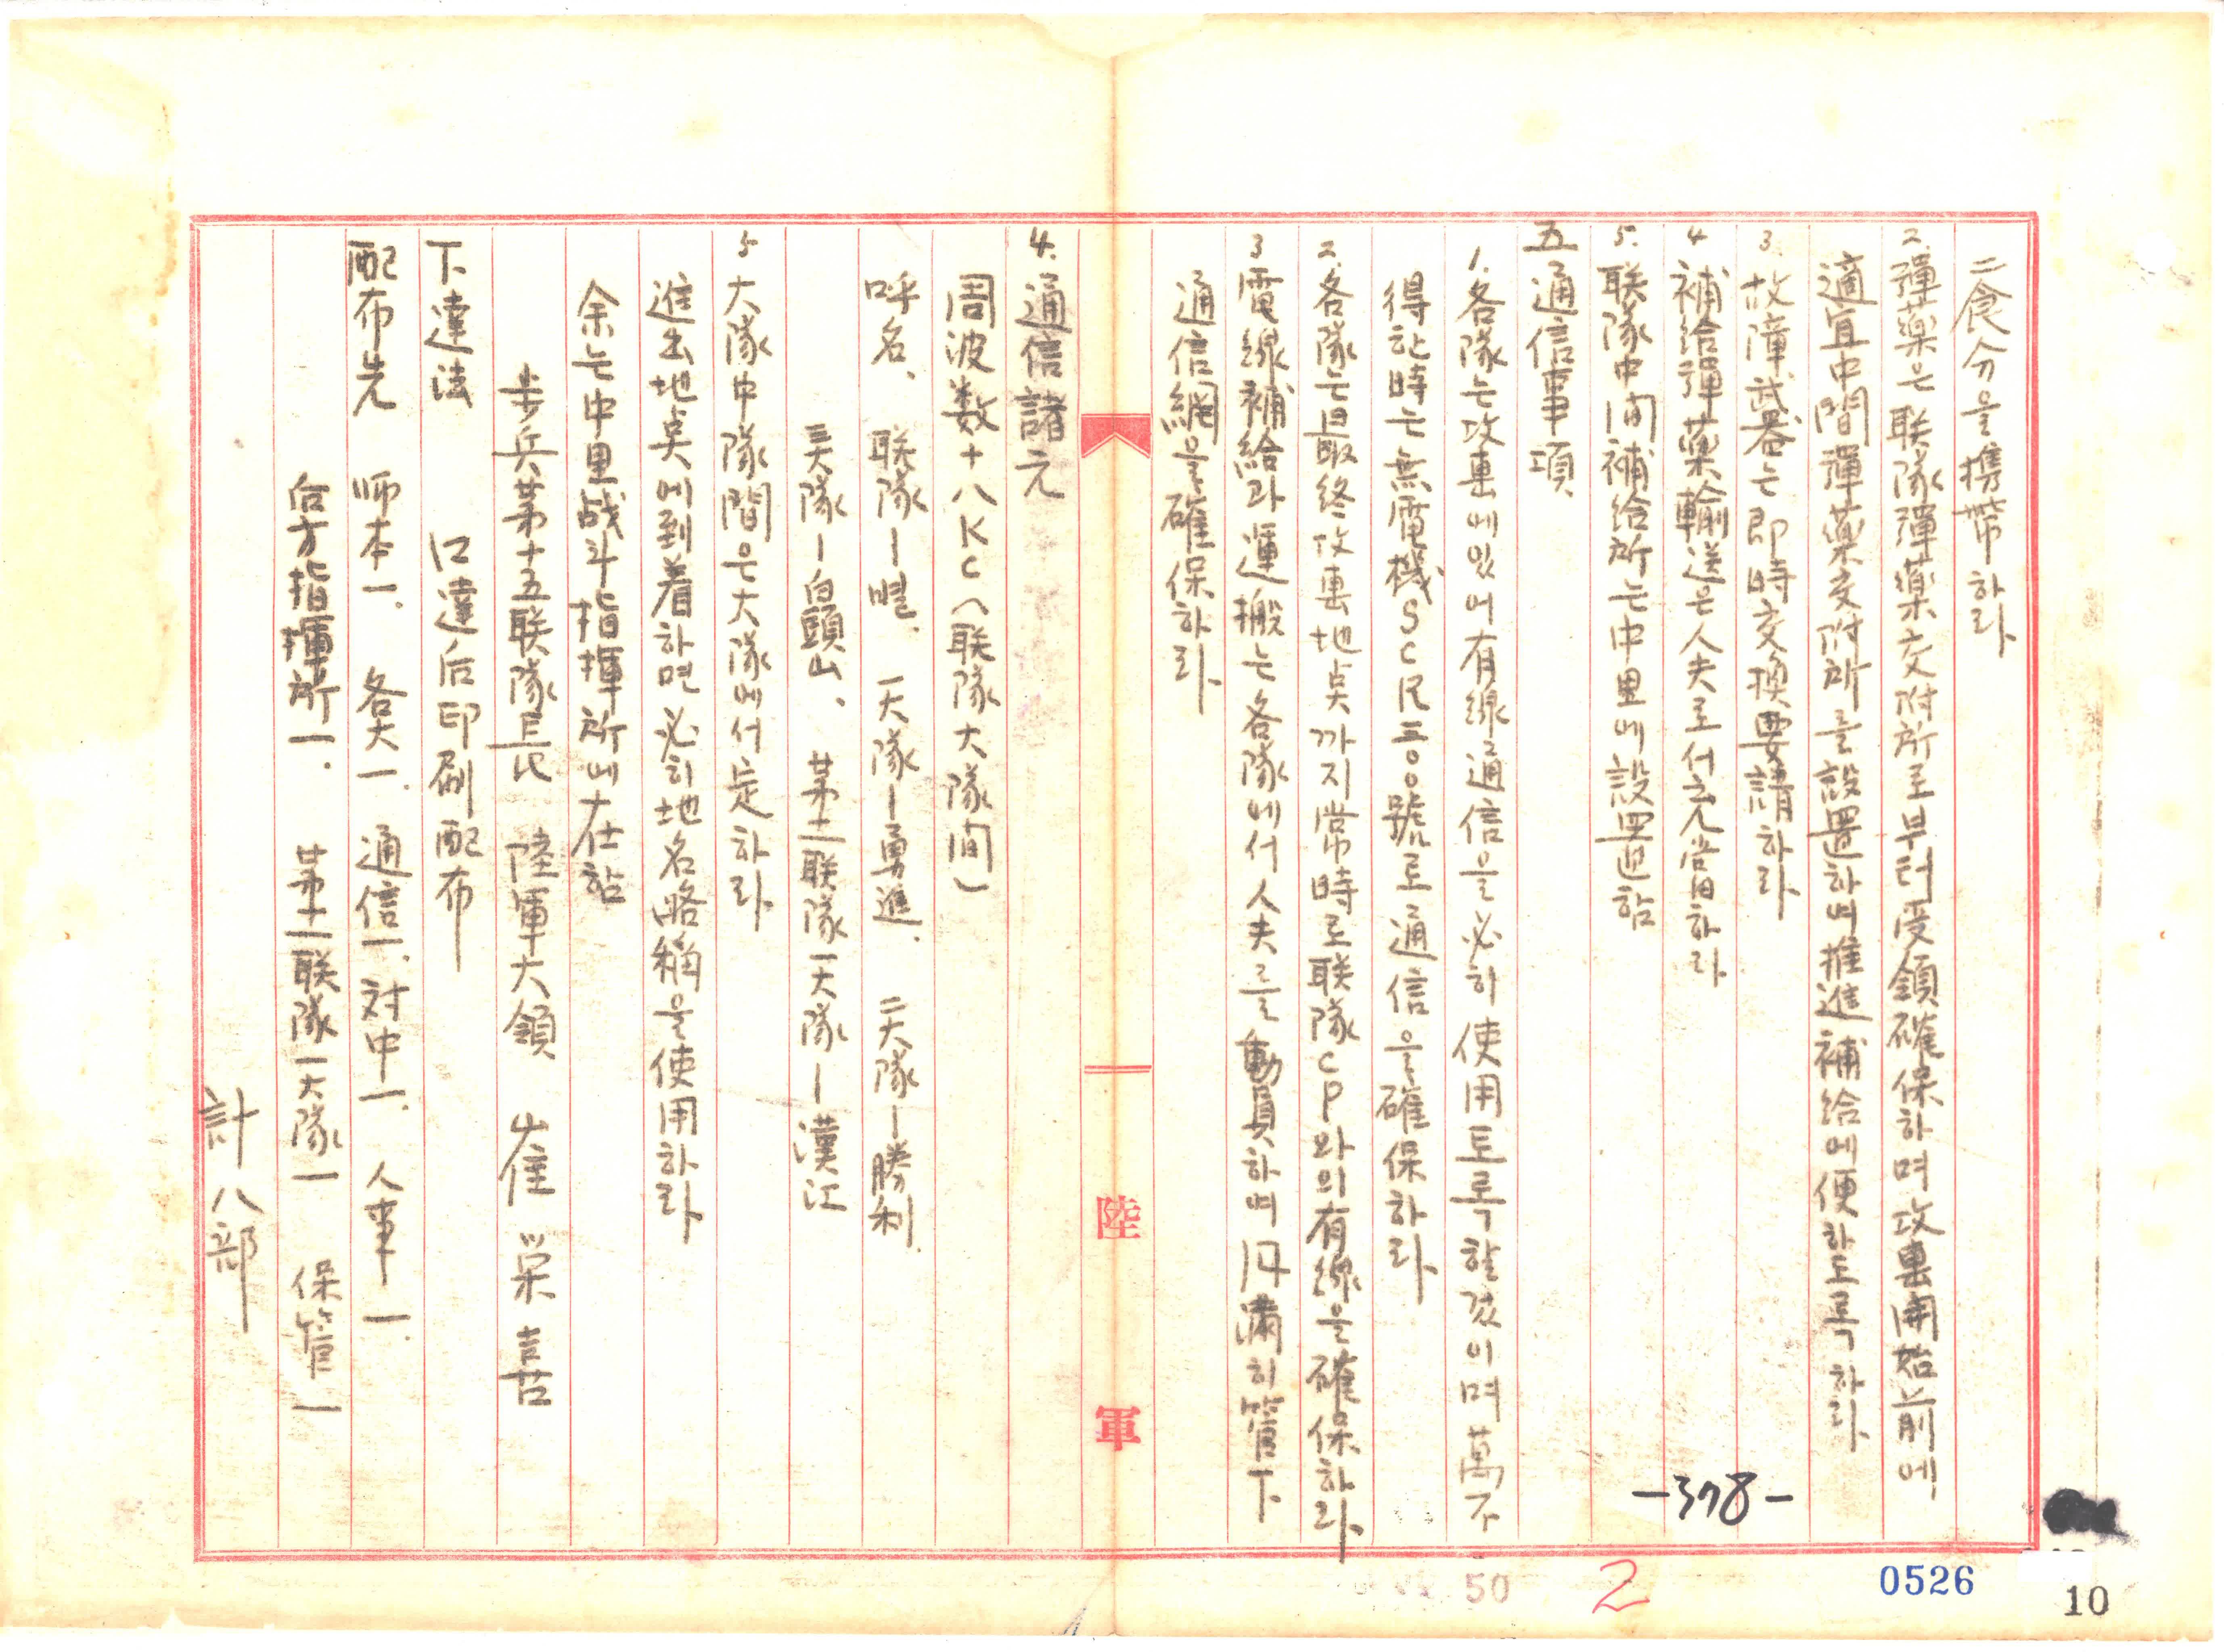 二食分을携帶하라
2. 彈薬은联隊彈薬交附所로부터受領確保하며攻惠開始前에
適宜中間彈薬交附所를設置하며推進補給에便하도록하라
3. 故障武器는即時交換要請하라
4 補給彈藥輸送은人夫로서充當하라
5. 联隊中间補給所는中里에設置함
五 通信事項
1. 各隊는攻惠에있어有線通信을必히使用토록할것이며萬不
得한時는無電機SCR三〇〇號로通信을確保하라
2. 各隊는最終攻惠地点까지常時로联隊CP와의有線을確保하라
3 電線補給과運搬는各隊에서人夫를動員하며円滿히管下
通信網을確保하라
陸軍
4. 通信諸元
周波数十八KC(联隊大隊间)
呼名、 联隊ー별. 一大隊ー勇進. 二大隊ー勝利.
三大隊ー白頭山、 苐十一联隊一大隊ー漢江
5 大隊中隊間은大隊에서定하라
進出地点에到着하면必히地名略稱을使用하라
余는中里战斗指揮所에在함
步兵苐十五联隊長 陸軍大領 崔栄喜
下達法 口達后印刷配布
配布先 师本一. 各大一. 通信一. 対中一. 人事一.
后方指揮所一. 苐十一联隊一大隊一 保管一
計八部
-378-
50
2
0526
10